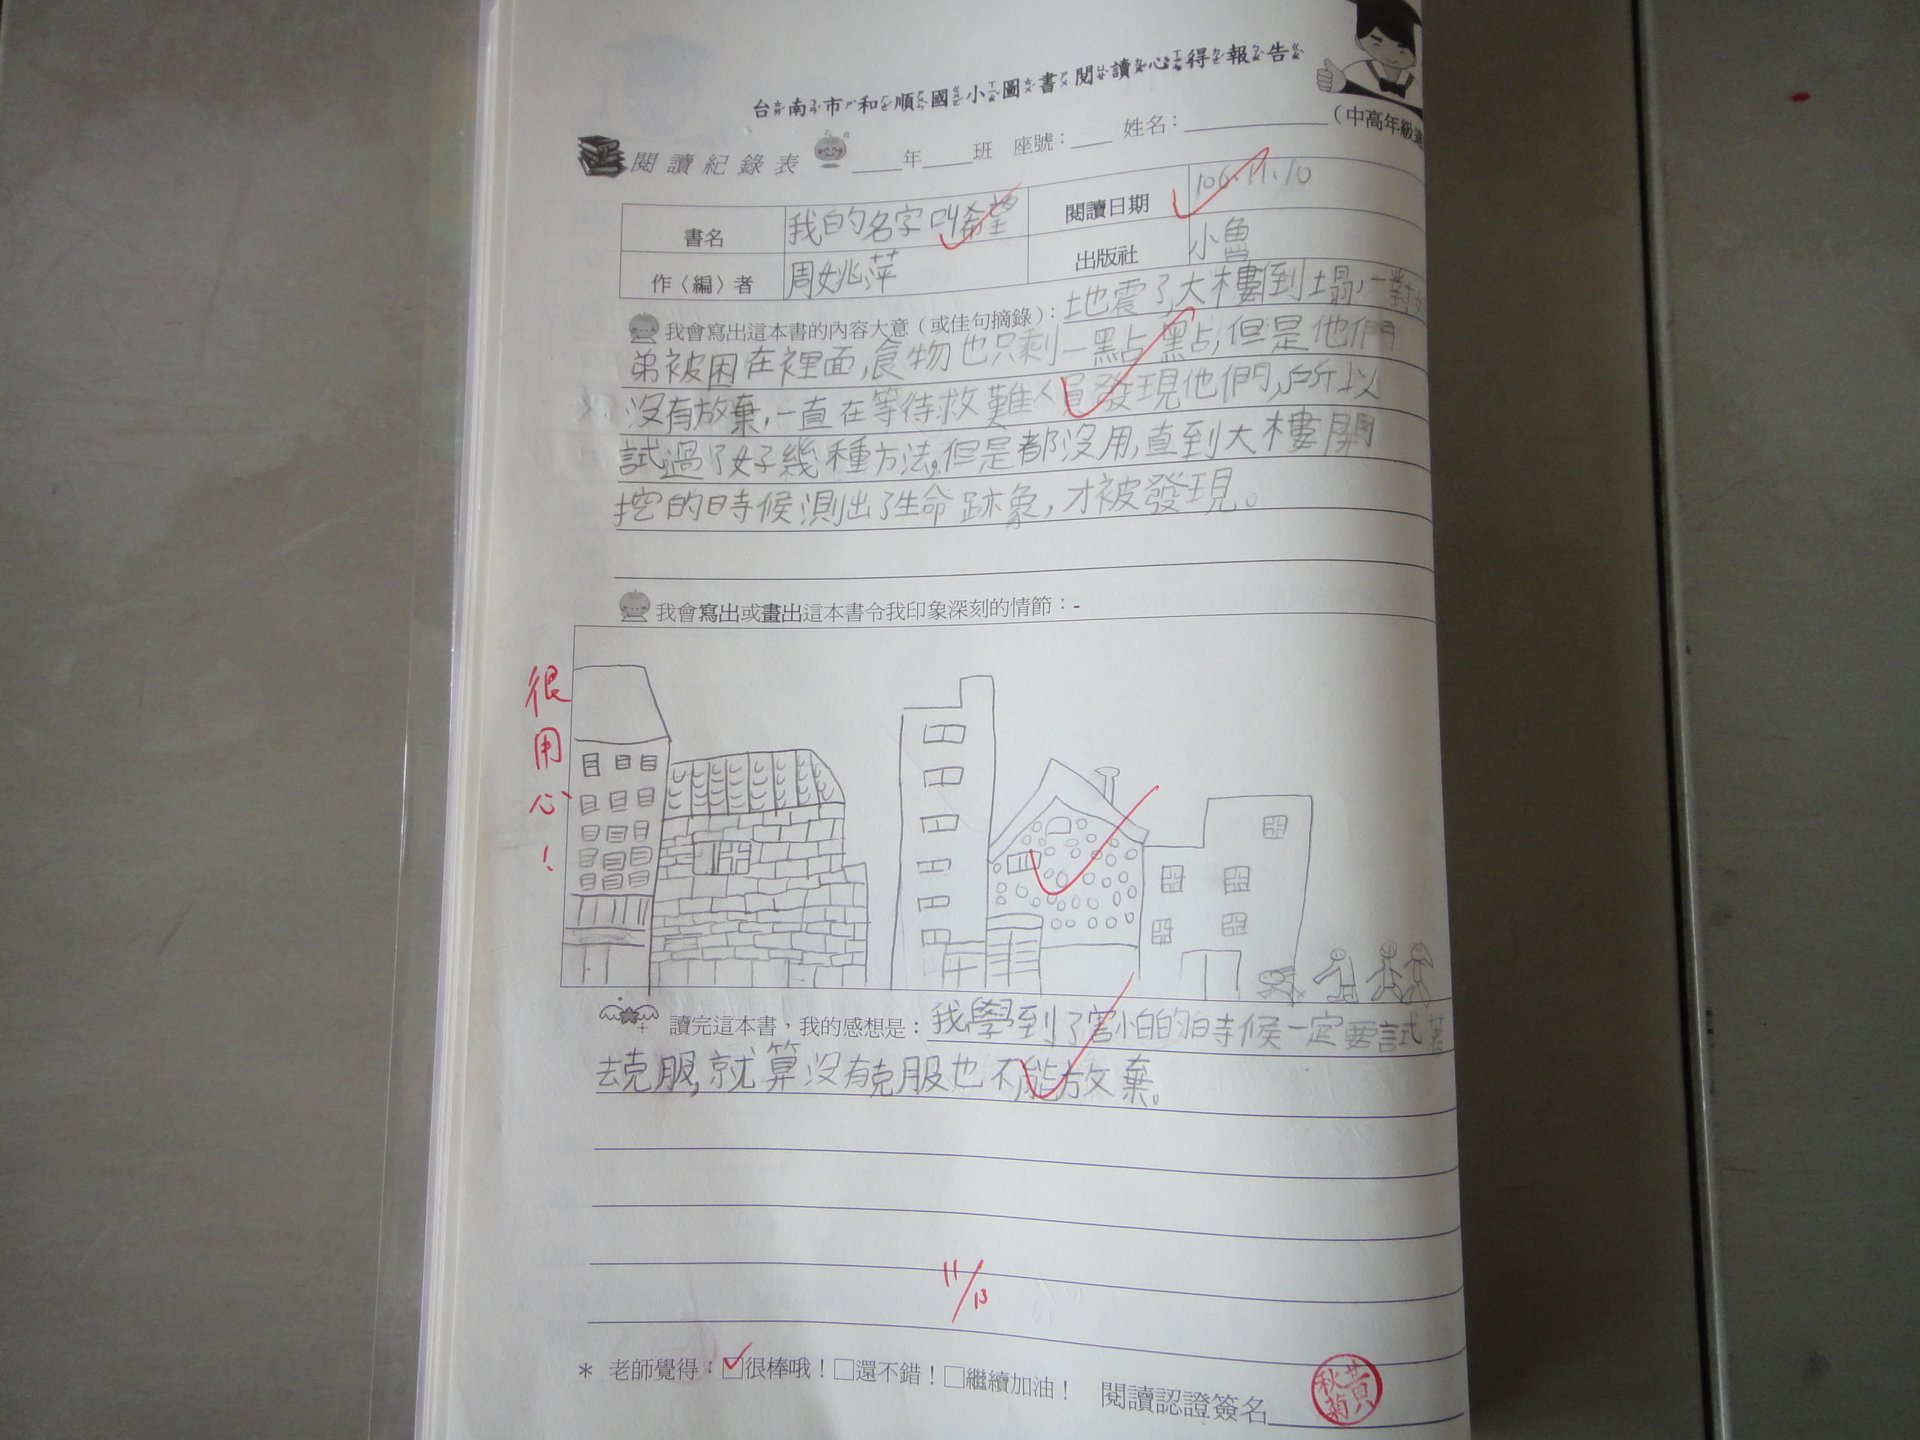 台南市和順國小圖書閱讀心得報告
閱讀紀錄表 ____年____班 座號：____ 姓名：____________（中高年級
書名 我的名字叫希望 閱讀日期 106.11.10
作〈編〉者 周姚萍 出版社 小魯
我會寫出這本書的內容大意（或佳句摘錄）：地震了,大樓到塌,一對
弟被困在裡面,食物也只剩一點點,但是他們
沒有放棄,一直在等待救難人員發現他們,所以
試過了好幾種方法,但是都沒用,直到大樓開
挖的時候測出了生命跡象,才被發現。
我會寫出或畫出這本書令我印象深刻的情節：-
很用心！
讀完這本書，我的感想是：我學到了害怕的時候一定要試著
去克服,就算沒有克服也不能放棄。
11/13
＊ 老師覺得：☑很棒哦！□還不錯！□繼續加油！ 閱讀認證簽名
黃秋菊